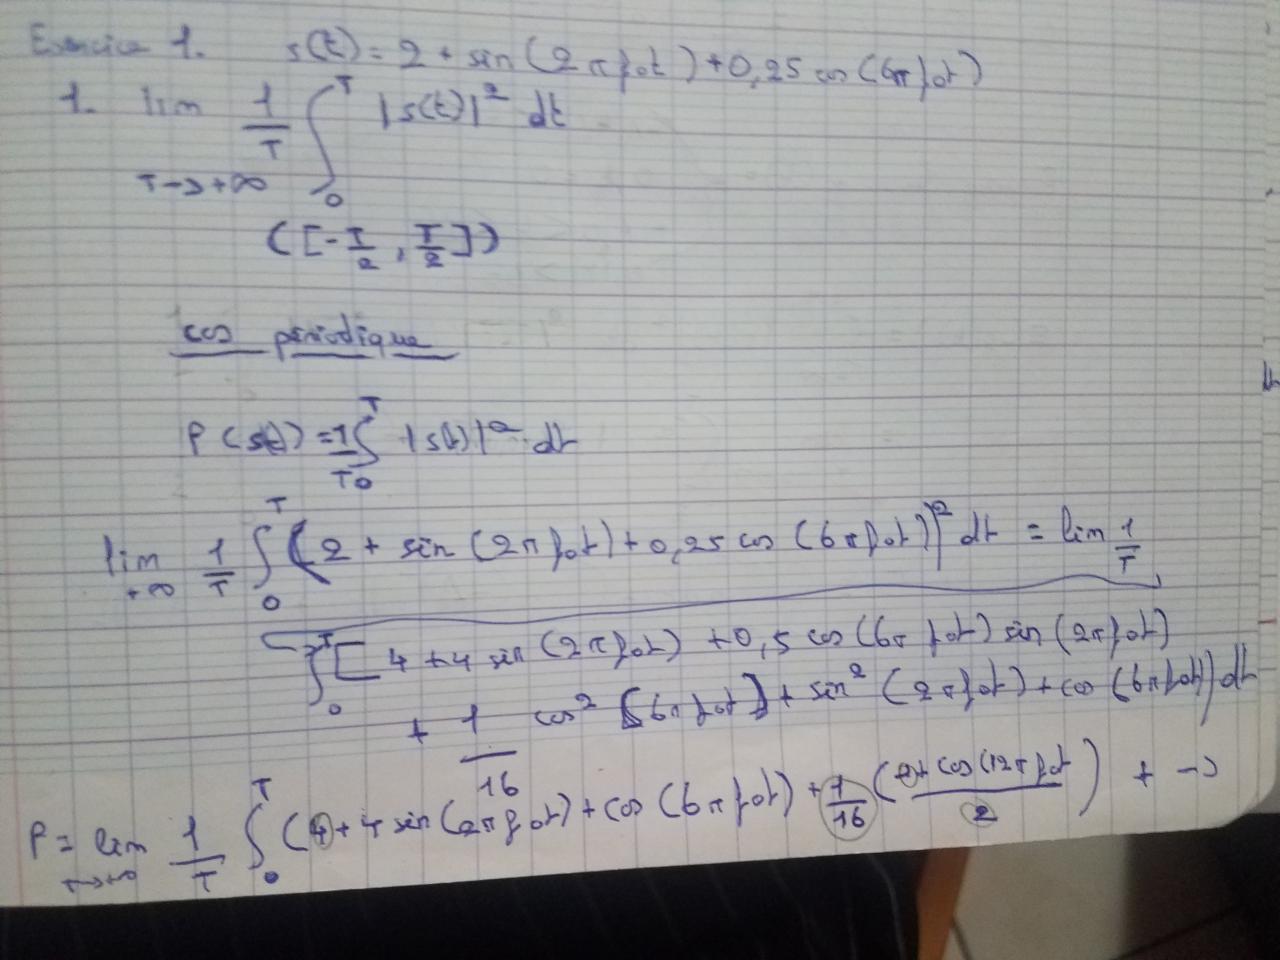 Exercice 1. s(t) = 2 + sin(2πf₀t) + 0,25 cos(6πf₀t)
1. lim 1/T ∫₀ᵀ |s(t)|² dt
T→+∞
([-T/2, T/2])
cas périodique
P(s(t)) = 1/T ∫₀ᵀ |s(t)|² dt
lim +∞ 1/T ∫₀ᵀ (2 + sin(2πf₀t) + 0,25 cos(6πf₀t))² dt = lim 1/T
∫₀ᵀ [4 + 4 sin(2πf₀t) + 0,5 cos(6πf₀t) sin(2πf₀t)
+ 1/16 cos² [6πf₀t] + sin²(2πf₀t) + cos(6πf₀t)) dt
P = lim T→+∞ 1/T ∫₀ᵀ (4 + 4 sin(2πf₀t) + cos(6πf₀t) + 1/16 (1+cos(12πf₀t)/2) + →